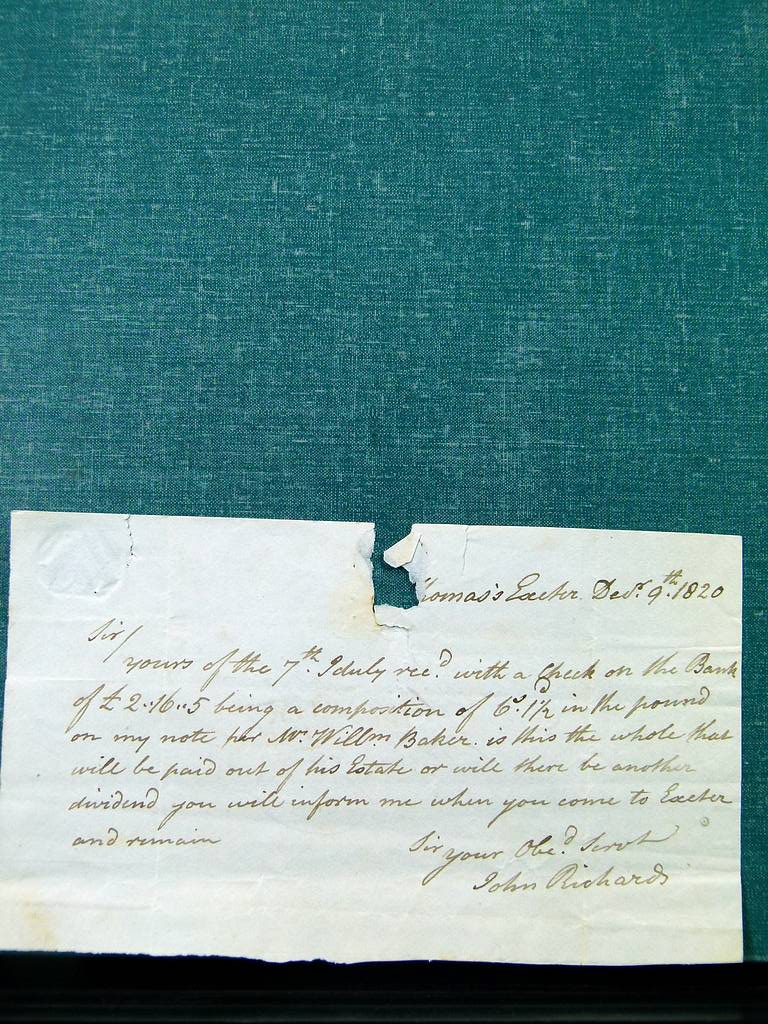 homas's Exeter Decr. 9th. 1820
Sir/
yours of the 7th. I duly recd. with a Check on the Bank
of £ 2..16..5 being a composition of 6s. 1d½ in the pound
on my note per Mr. Willm Baker. is this the whole that
will be paid out of his Estate or will there be another
dividend you will inform me when you come to Exeter
and remain
Sir your Obed. Servt
John Richards